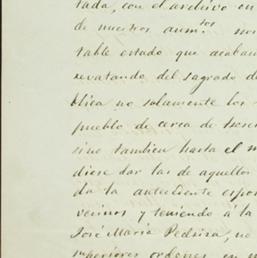 tada, con el archivo en
de nuestros aum.tos
table estado que acaban
revatando del sagrado d
blica no solamente los
pueblo de cerca de
sino tambien hasta el m
diese dar las de aquellos
da la antecedente espo
vecinos y teniendo á la
José Maria Pedriza, no
superiores ordenes en